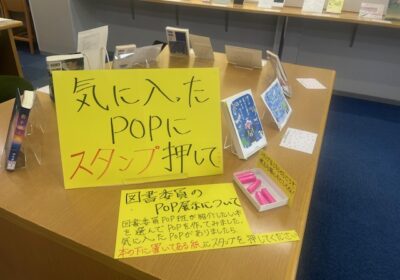 気に入った
POPに
スタンプ押して
図書委員の
POP展示について
図書委員POP班が紹介したい本
を選んでPOPを作ってみました。
気に入ったPOPがありましたら、
本の下に置いてある紙にスタンプを押してください。